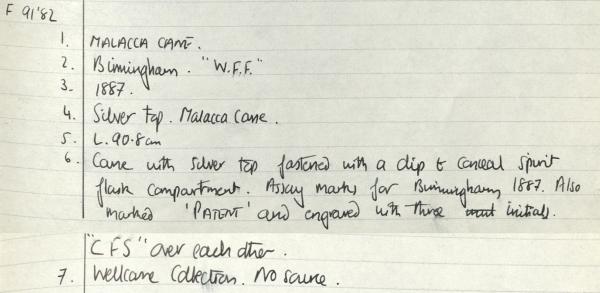 F 91'82
1. MALACCA CANE.
2. Birmingham. "W.F.F."
3. 1887.
4. Silver top. Malacca Cane.
5. L. 90.8cm
6. Cane with silver top fastened with a clip to conceal spirit
flask compartment. Assay marks for Birmingham, 1887. Also
marked 'PATENT' and engraved with three initials.
"CFS" over each other.
7. Wellcome Collection. No source.